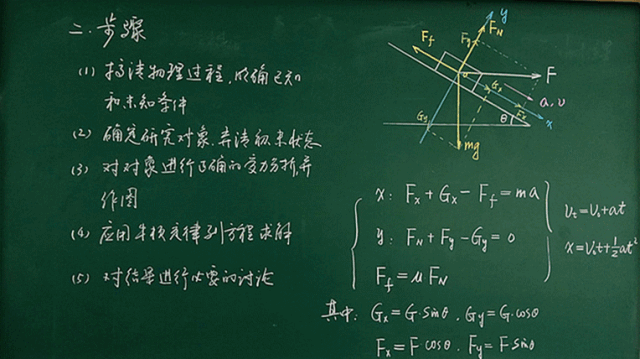 二.步骤
(1) 搞清物理过程,明确已知
和未知条件
(2) 确定研究对象.弄清初末状态
(3) 对对象进行正确的受力分析,并
作图
(4) 应用牛顿定律列方程求解
(5) 对结果进行必要的讨论
y
F_N
F_y
F_f
F
o
G_x
a,υ
F_x
x
G_y
θ
mg
x: F_x + G_x − F_f = ma
y: F_N + F_y − G_y = 0
F_f = μ F_N
υ_t = υ_0 + at
x = υ_0t + ½at²
其中: G_x = G·sinθ . G_y = G·cosθ
F_x = F·cosθ . F_y = F·sinθ